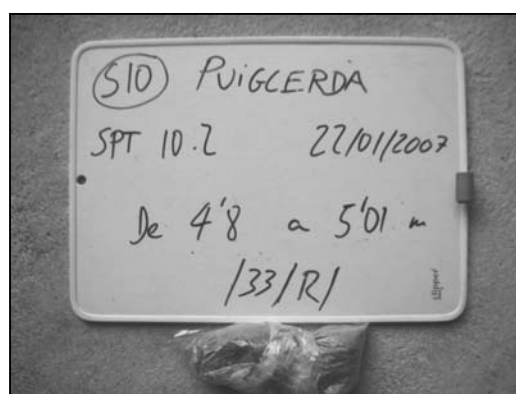 S10 PUIGCERDA
SPT 10.2 22/01/2007
De 4'8 a 5'01 m
/33/R/
slipper